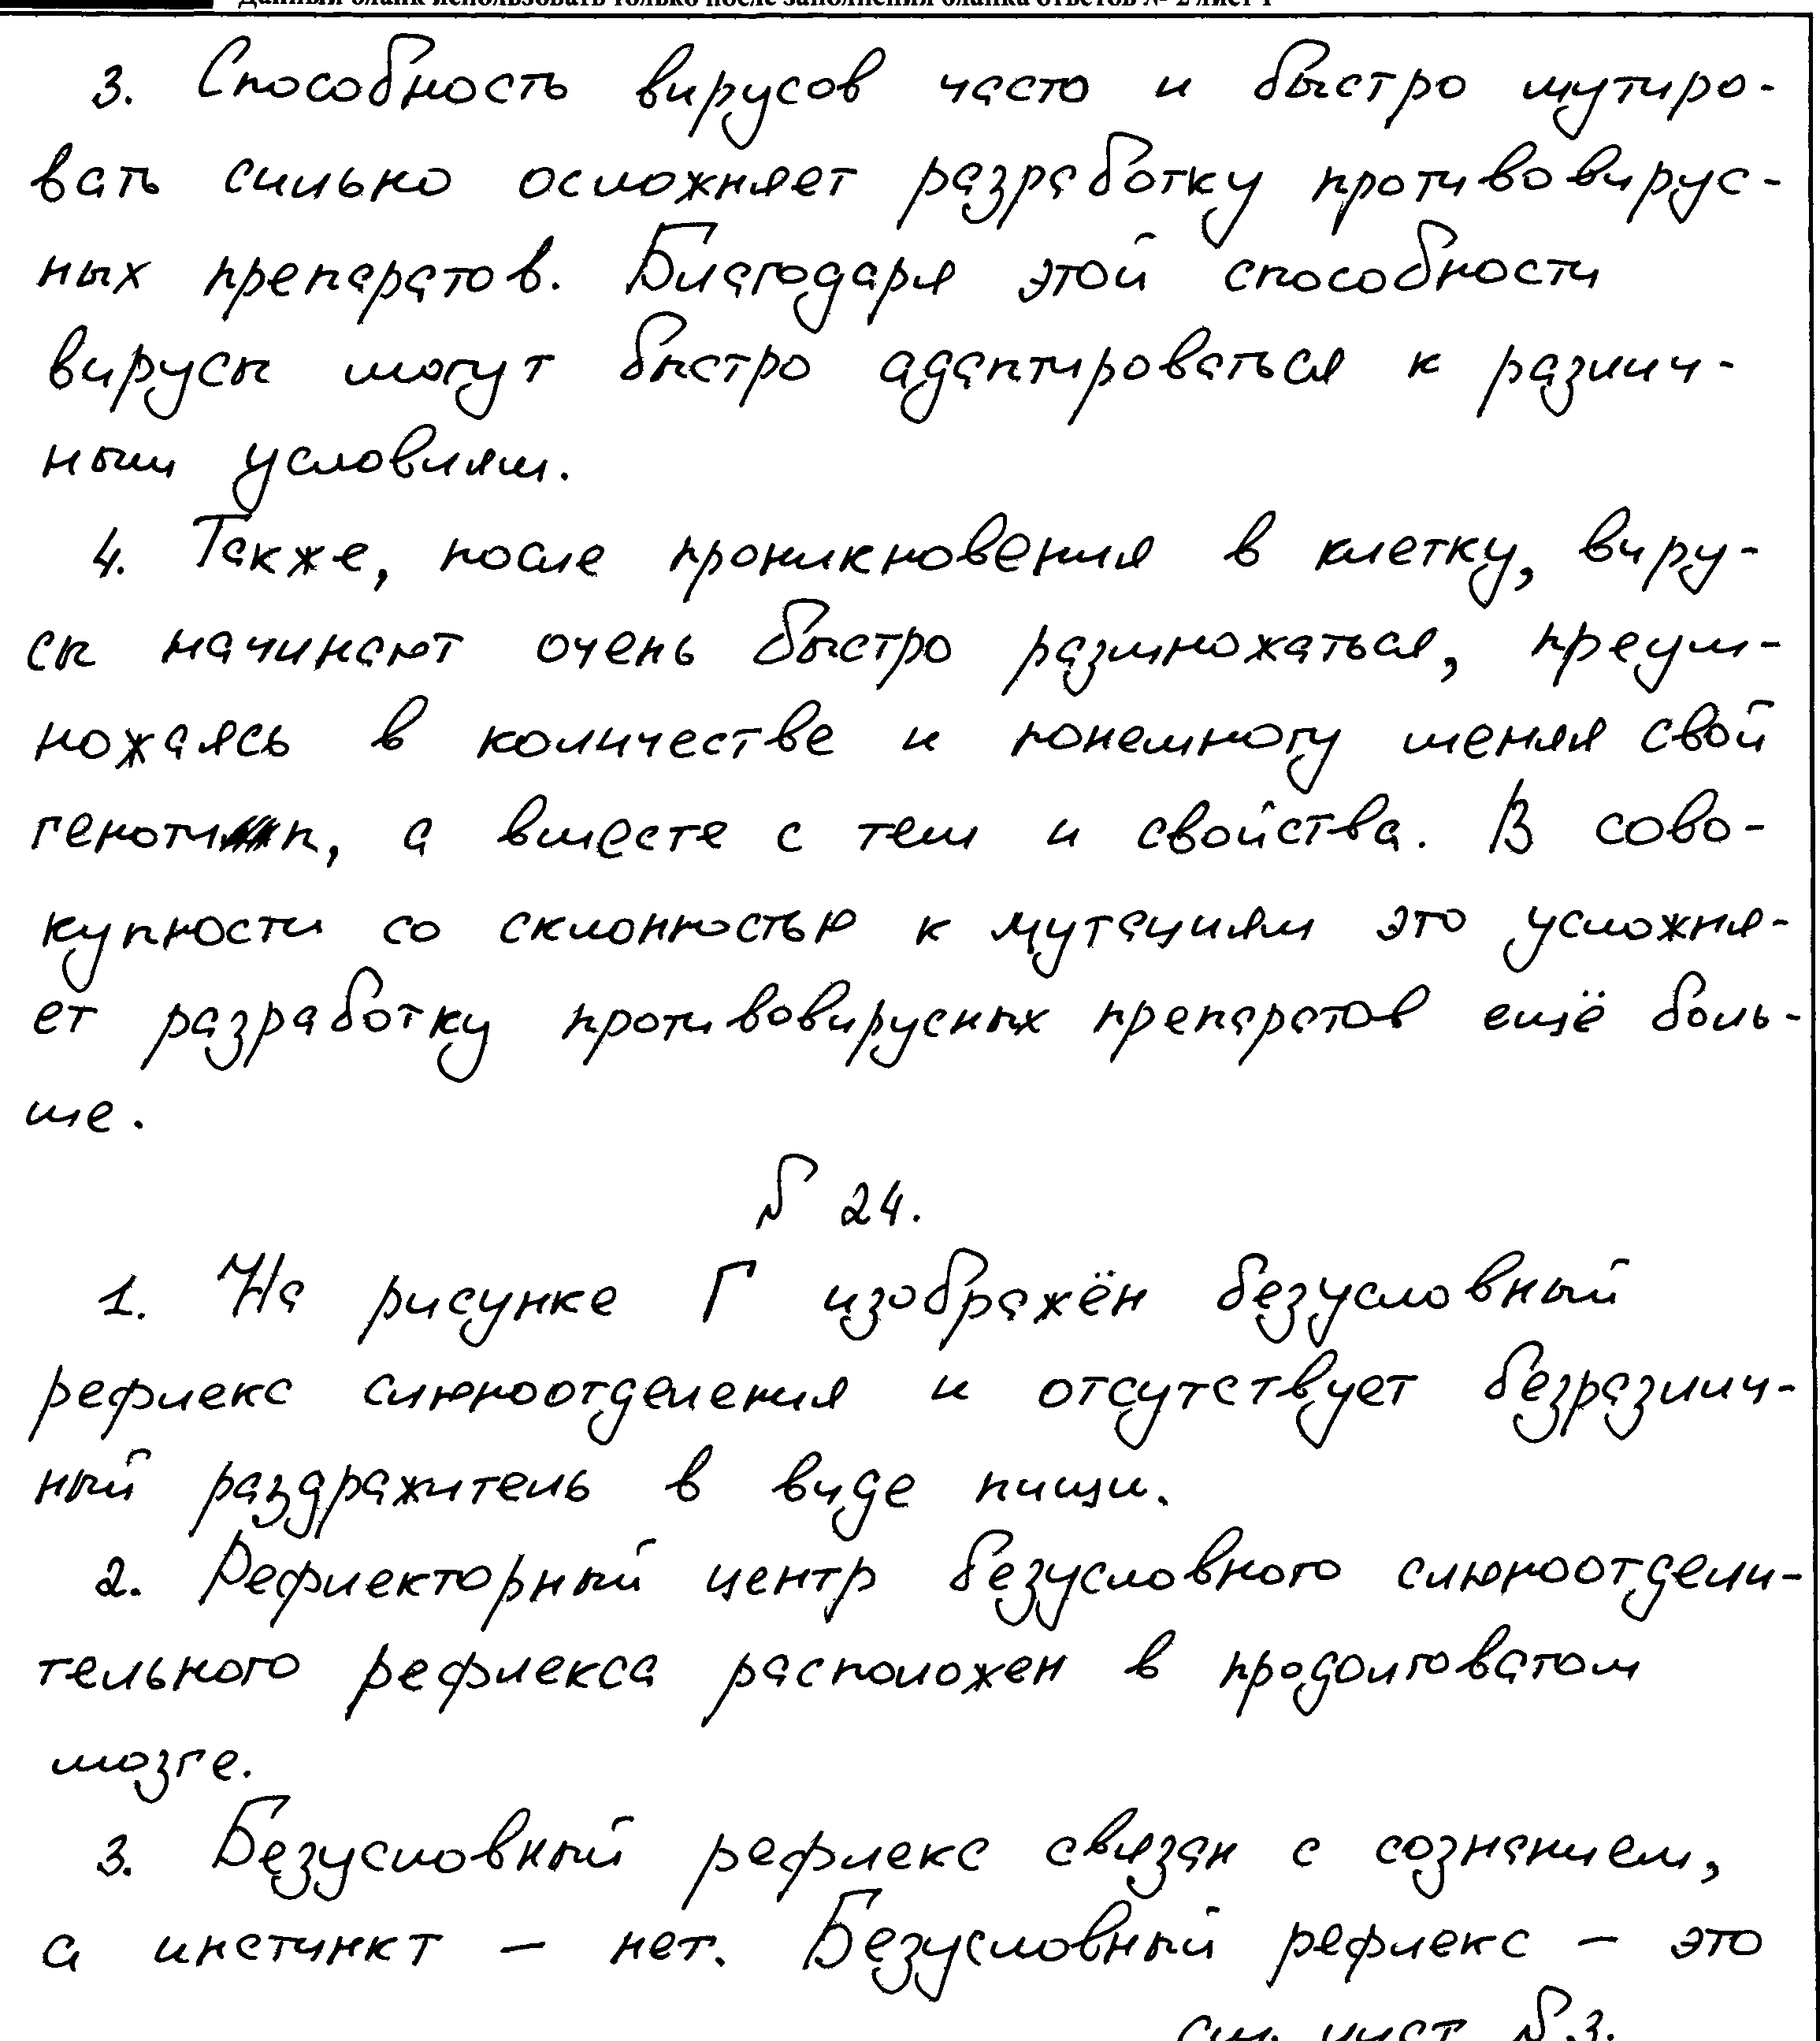 Данный бланк использовать только после заполнения бланка ответов № 2 лист 1
3. Способность вирусов часто и быстро мутиро-
вать сильно осложняет разработку противовирус-
ных препаратов. Благодаря этой способности
вирусы могут быстро адаптироваться к различ-
ным условиям.
4. Также, после проникновения в клетку, виру-
сы начинают очень быстро размножаться, преум-
ножаясь в количестве и понемногу меняя свой
генотип, а вместе с тем и свойства. В сово-
купности со склонностью к мутациям это усложня-
ет разработку противовирусных препаратов ещё боль-
ше.
№ 24.
1. На рисунке Г изображён безусловный
рефлекс слюноотделения и отсутствует безразлич-
ный раздражитель в виде пищи.
2. Рефлекторный центр безусловного слюноотдели-
тельного рефлекса расположен в продолговатом
мозге.
3. Безусловный рефлекс связан с сознанием,
а инстинкт – нет. Безусловный рефлекс – это
см. лист №3.